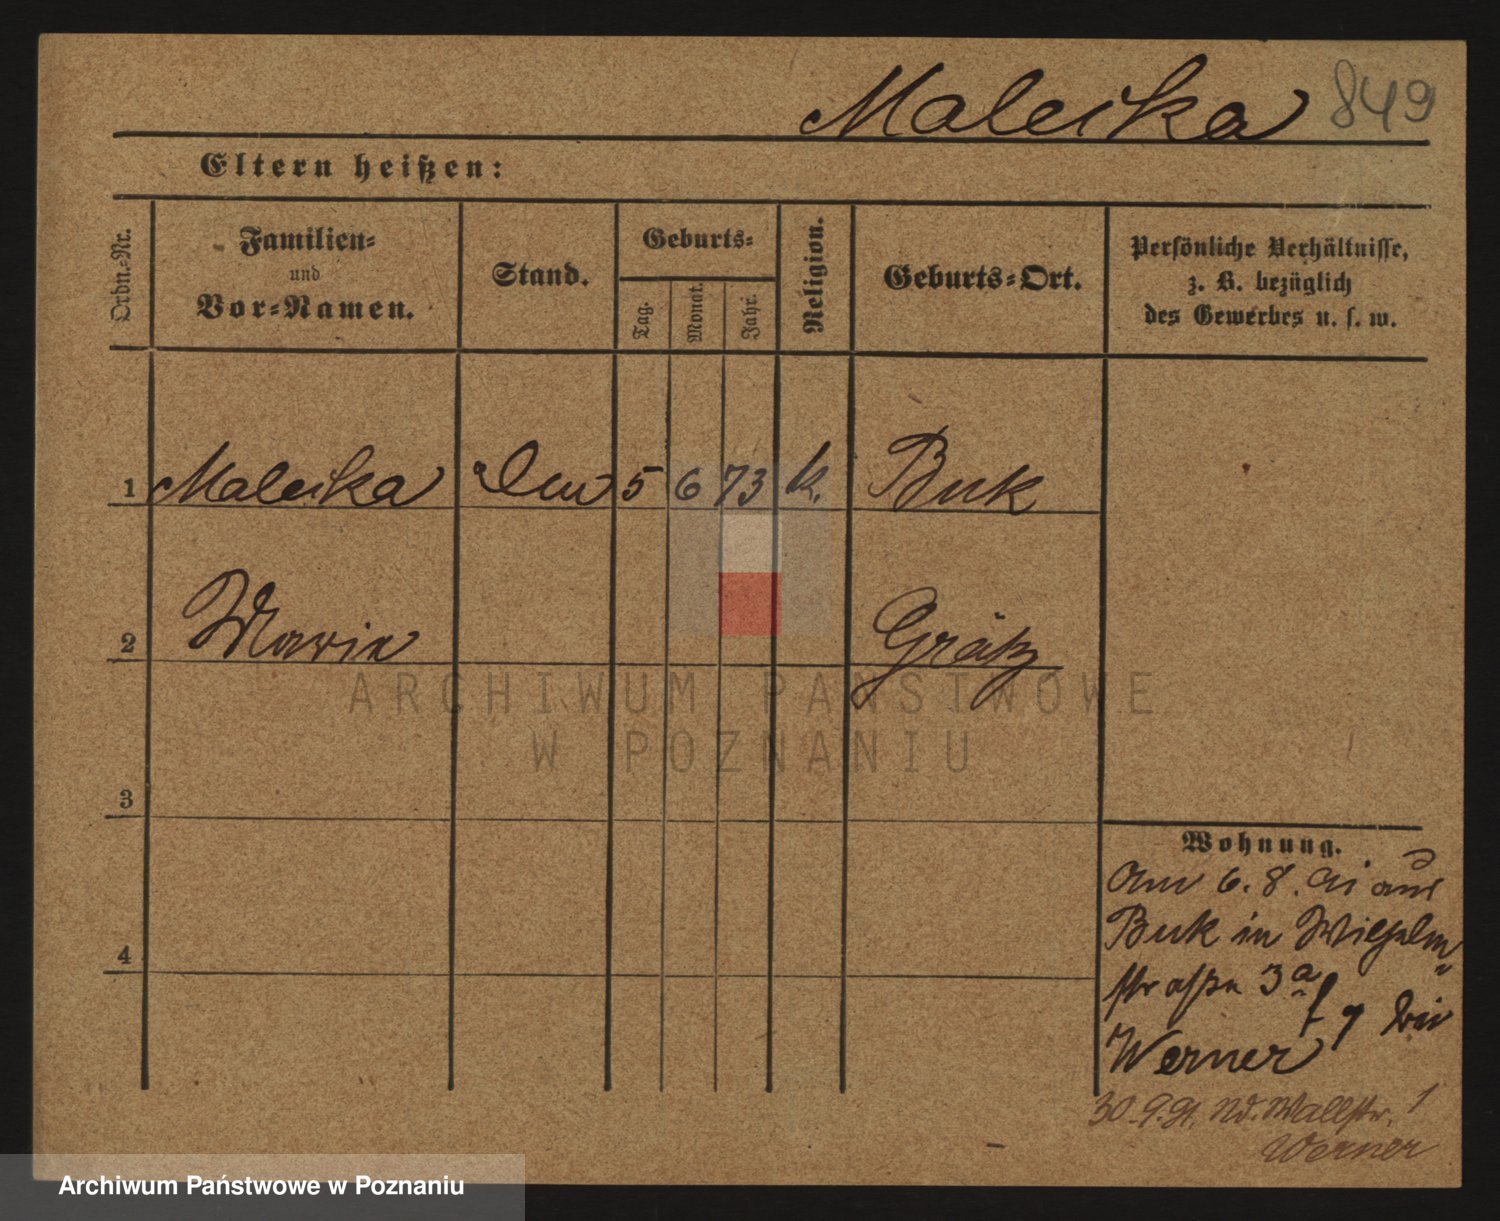 Maleika 849
Eltern heißen:
Ordn.-Nr.
Familien-
und
Vor-Namen.
Stand.
Geburts-
Tag.
Monat.
Jahr.
Religion.
Geburts-Ort.
Persönliche Verhältnisse,
z. B. bezüglich
des Gewerbes u. s. w.
1 Maleika 5 6 73 k. Buk
2 Maria Grätz
3
4
ARCHIWUM PAŃSTWOWE
W POZNANIU
Wohnung.
Am 6. 8. 91 aus
Buk in Wilhelm-
straße 3a
bei
Werner
30.9.91. Wallstr. 1
Werner
Archiwum Państwowe w Poznaniu